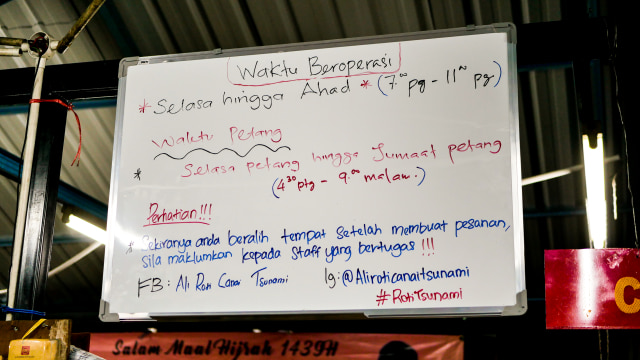 Waktu Beroperasi
* Selasa hingga Ahad * (7.00 pg - 11.00 pg)
Waktu Petang
* Selasa petang hingga Jumaat petang
(4.30 ptg - 9.00 malam.)
Perhatian!!!
* Sekiranya anda beralih tempat setelah membuat pesanan,
sila maklumkan kepada staff yang bertugas !!!
FB: Ali Roti Canai Tsunami Ig: @Aliroticanaitsunami
#RotiTsunami
Salam Maal Hijrah 1439H